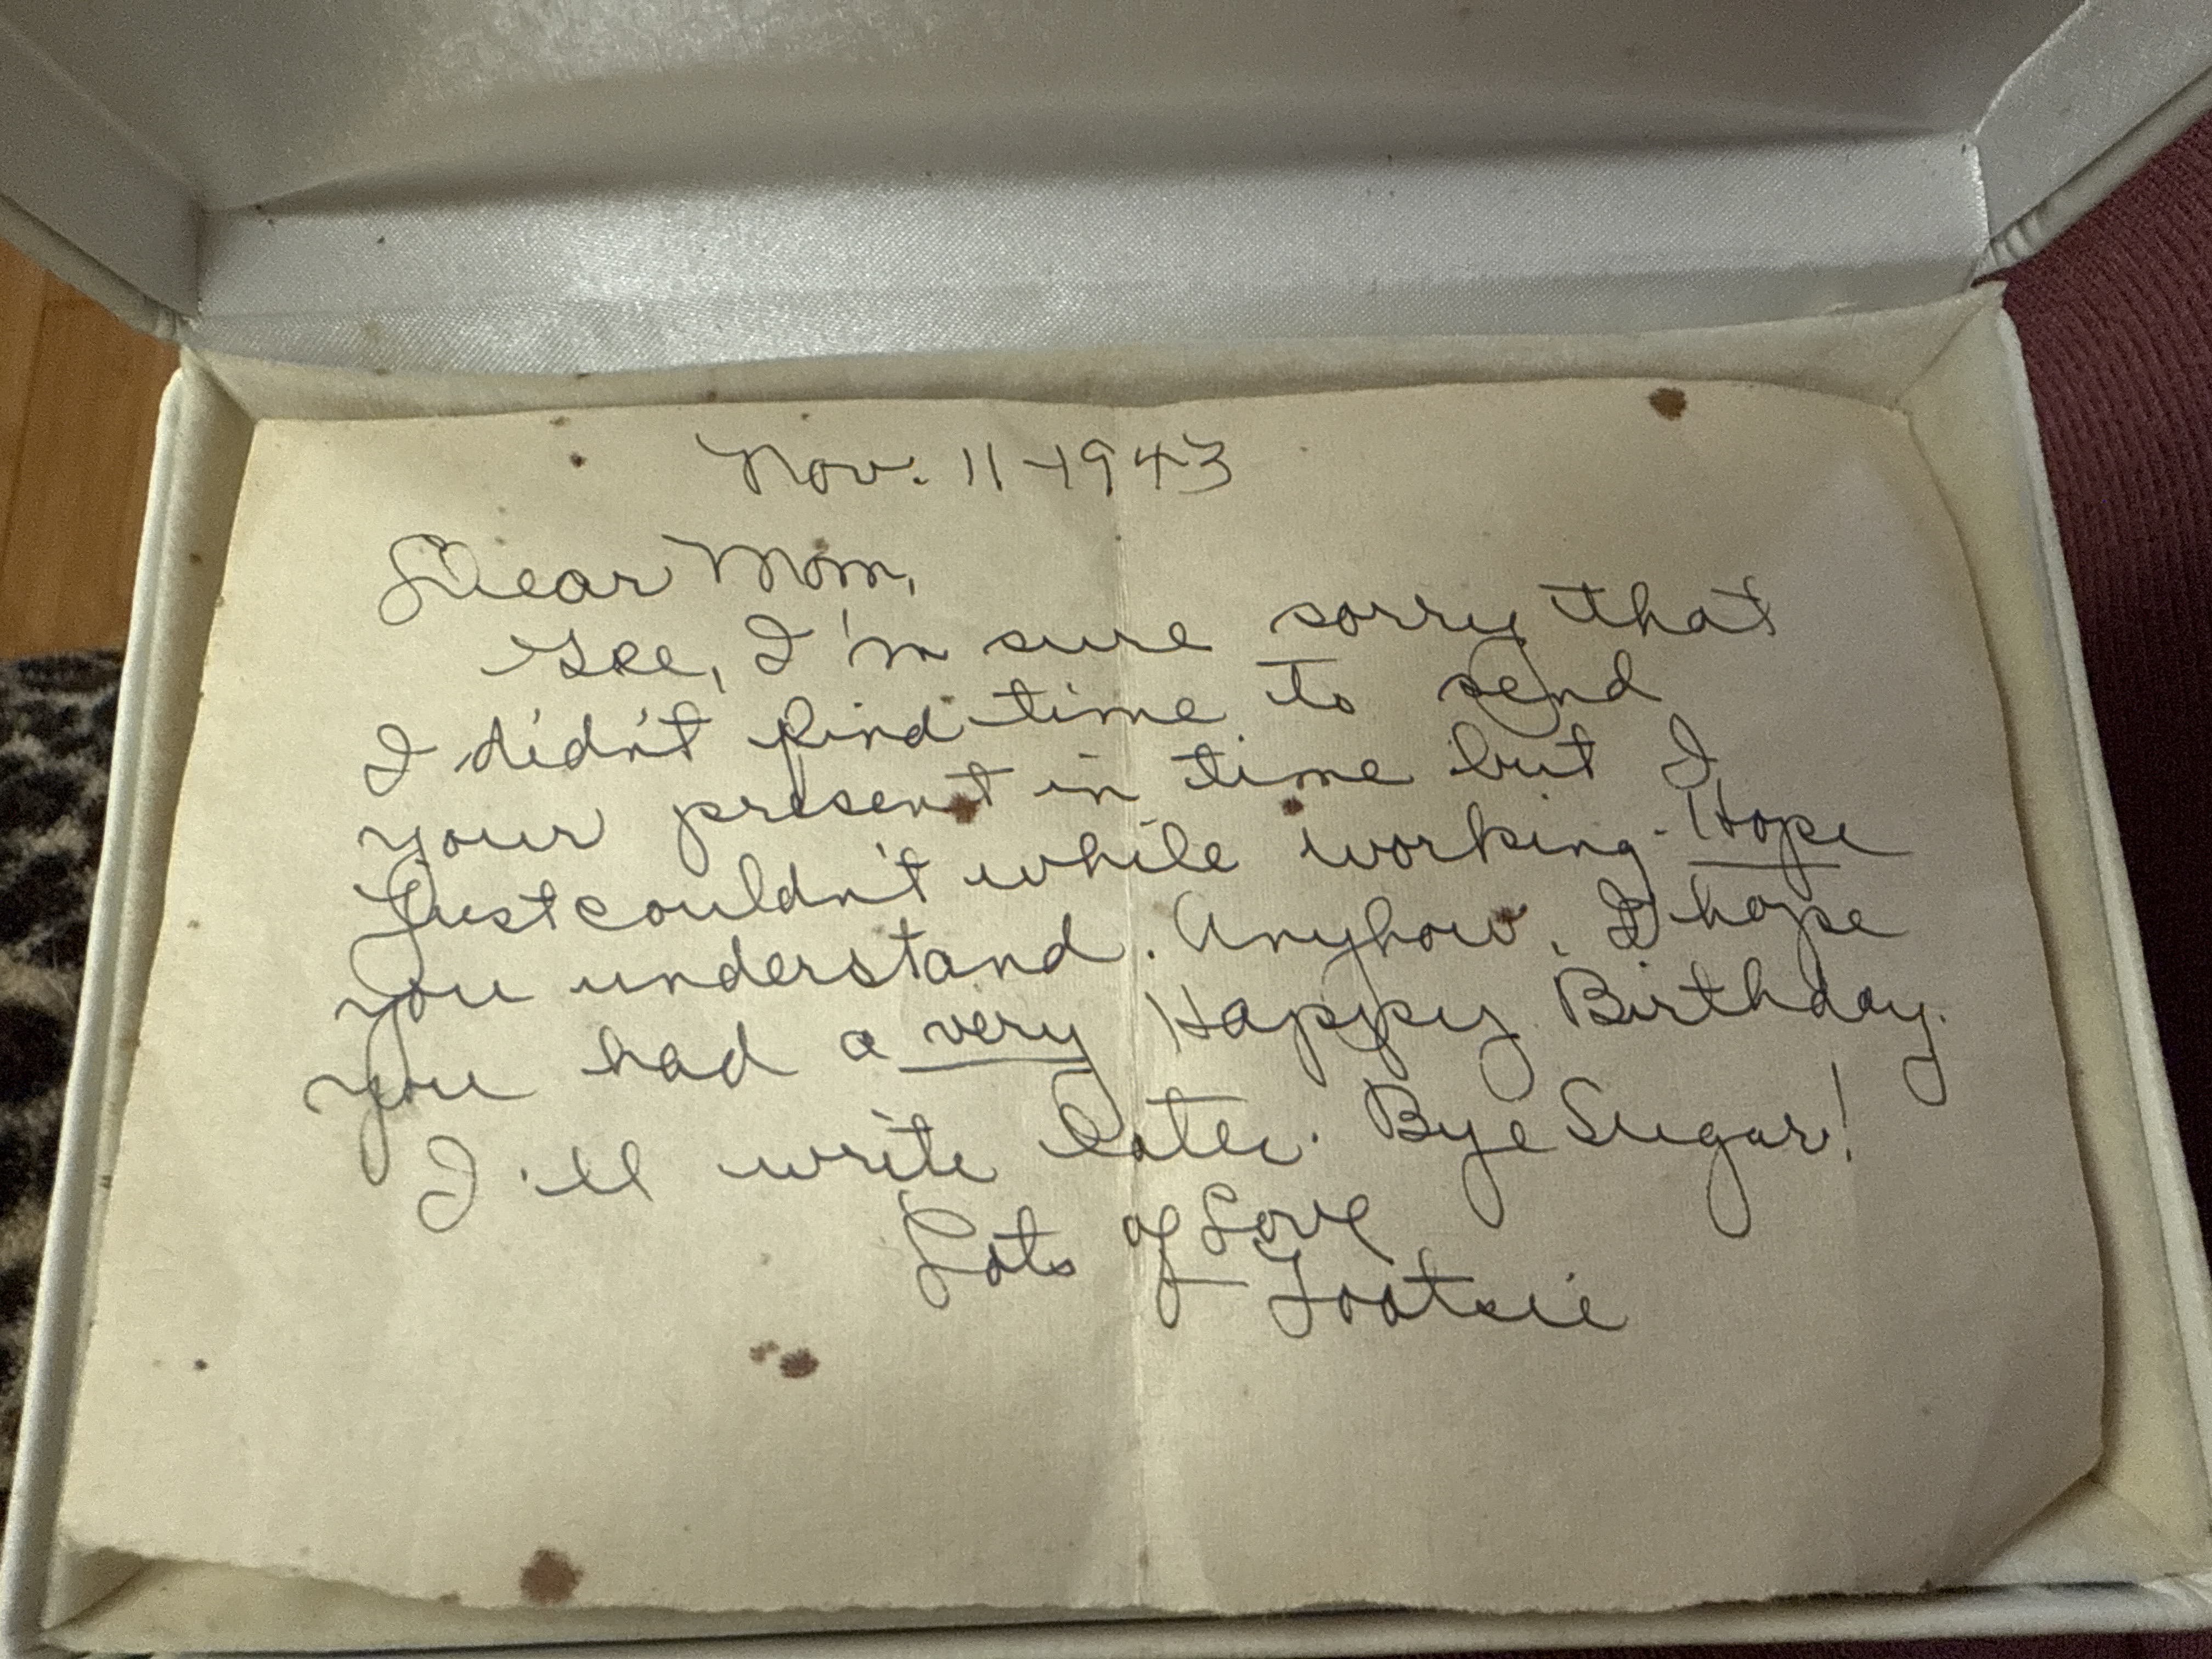 Nov. 11-1943
Dear Mom,
Gee, I'm sure sorry that
I didn't find time to send
your present in time but I
just couldn't while working. Hope
you understand. Anyhow, I hope
you had a very Happy Birthday.
I'll write later. Bye Sugar!
Lots of Love
Tootsie